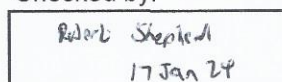 Checked by:
Robert Shepherd
17 Jan 24